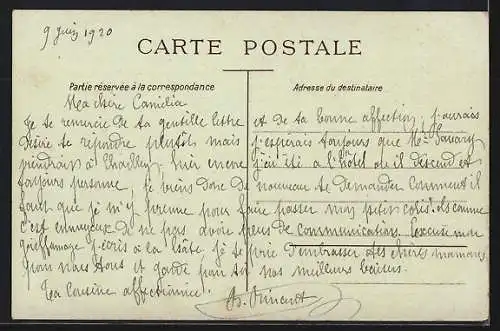 9 juin 1920
CARTE POSTALE
Partie réservée à la correspondance
Adresse du destinataire
Ma chère Camélia
Je te remercie de ta gentille lettre
et de ta bonne affection, j'aurais
désiré te répondre plutôt, mais
j'espérais toujours que Mr
viendrait à hier encore
j'ai été à l'hôtel où il descend et
toujours personne, je viens donc de
nouveau te demander comment il
faut que je m'y prenne pour faire passer mon petit colis. ils comme
c'est ennuyeux de ne pas avoir plus de communications. Excuse mon
griffonnage j'écris à la hâte, je te prie d'embrasser tes chères mamans
pour nous tous et garde pour toi nos meilleurs baisers.
Ta cousine affectionnée
Vincent